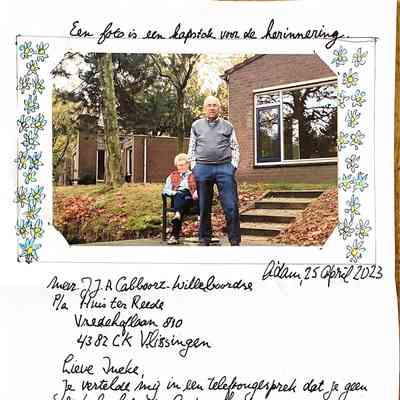 Een foto is een kapstok voor de herinnering.
A'dam, 25 April 2023
Mevr. J.J.A Cabboort-Willeboordse
P/a Huis ter Reede
Vredehoflaan 810
4382 CK Vlissingen
Lieve Ineke,
Je vertelde mij in een telefoongesprek dat je geen